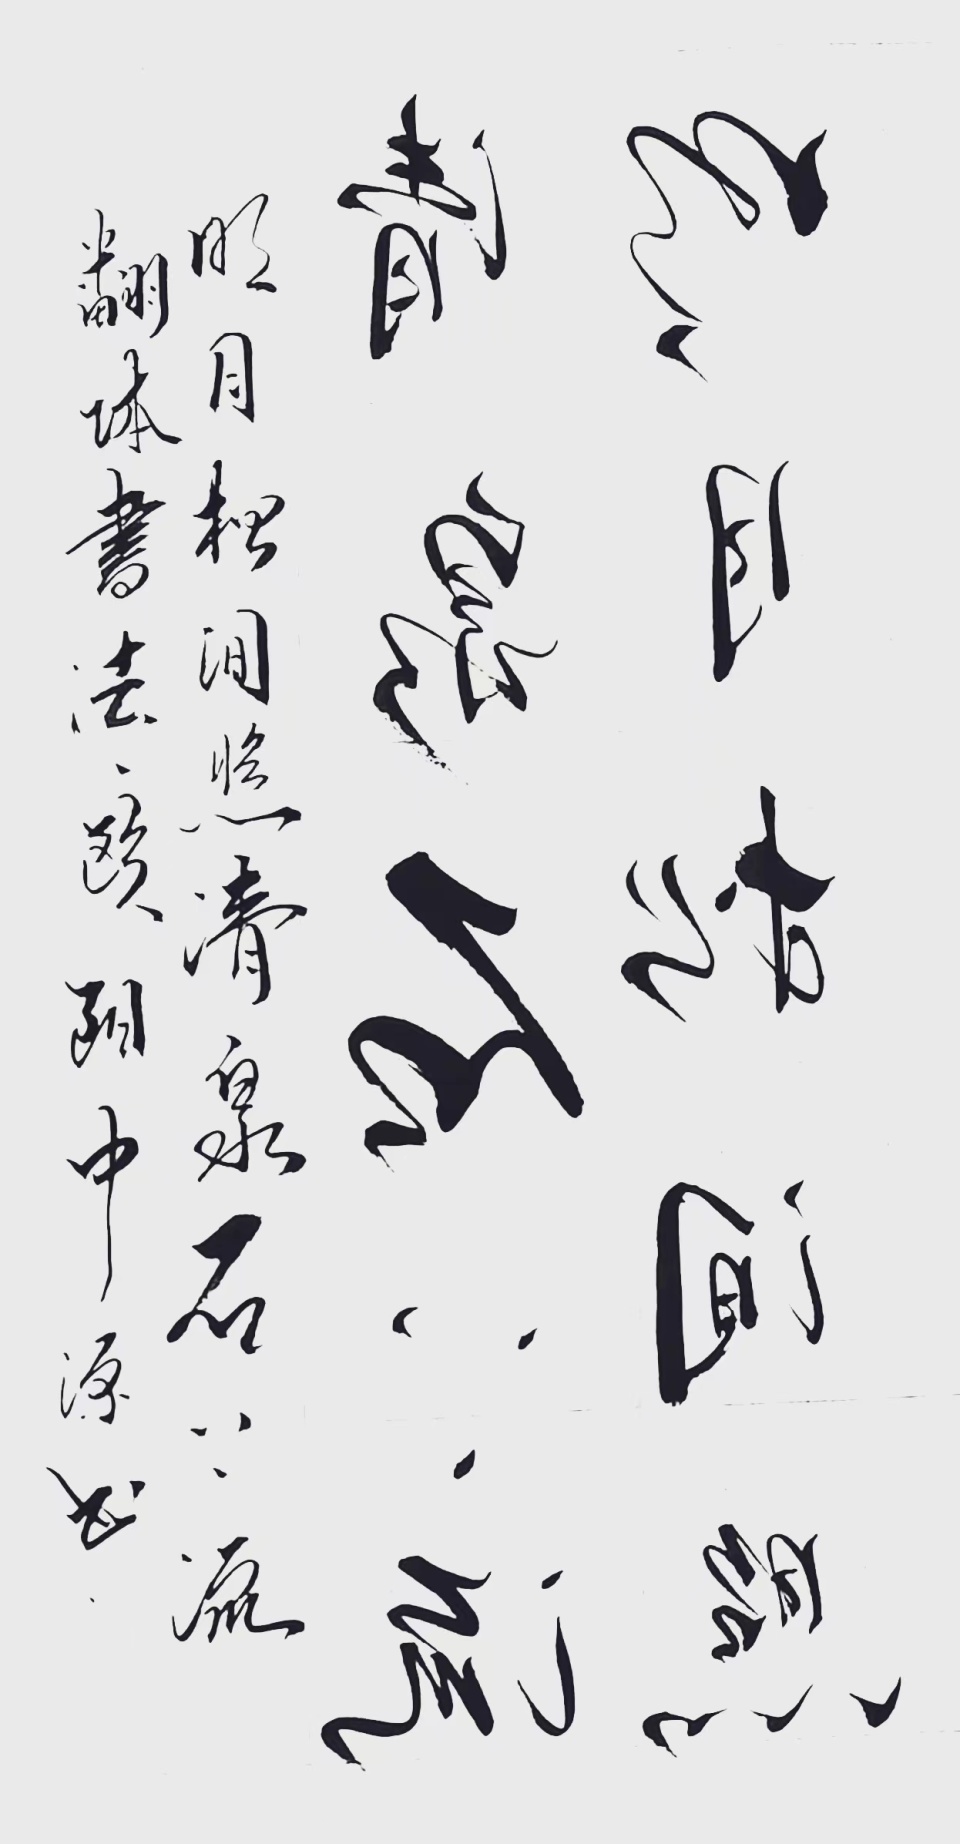 明月松间照
清泉石上流
明月松间照清泉石上流
翻体書法欧阳中源书